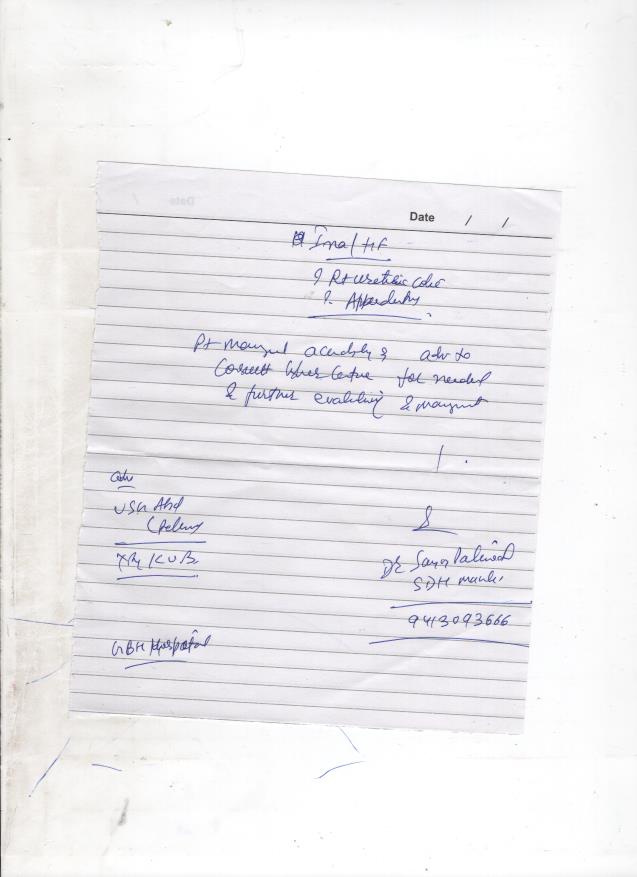 Date / /
Ina / HF
? Rt ureteric colic
? Appendicitis
Pt managed accordingly & adv to
Consult higher Centre for needed
& further evaluation & managment
adv
USG Abd
(Pelvis
XRy KUB
GBH Hospital
Dr
SDH
9413093666